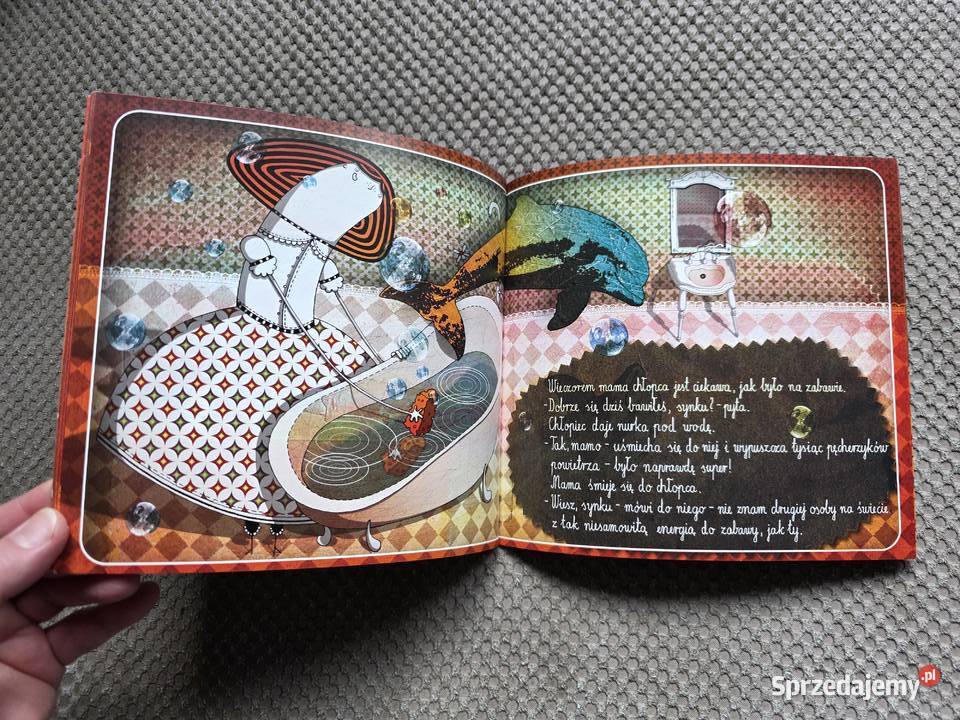 Wieczorem mama chłopca jest ciekawa, jak było na zabawie.
-Dobrze się dziś bawiłeś, synku? - pyta.
Chłopiec daje nurka pod wodę.
-Tak, mamo - uśmiecha się do niej i wypuszcza tysiąc pęcherzyków
powietrza - było naprawdę super!
Mama śmieje się do chłopca.
-Wiesz, synku - mówi do niego - nie znam drugiej osoby na świecie
z tak niesamowitą energią do zabawy, jak ty.
Sprzedajemy.pl